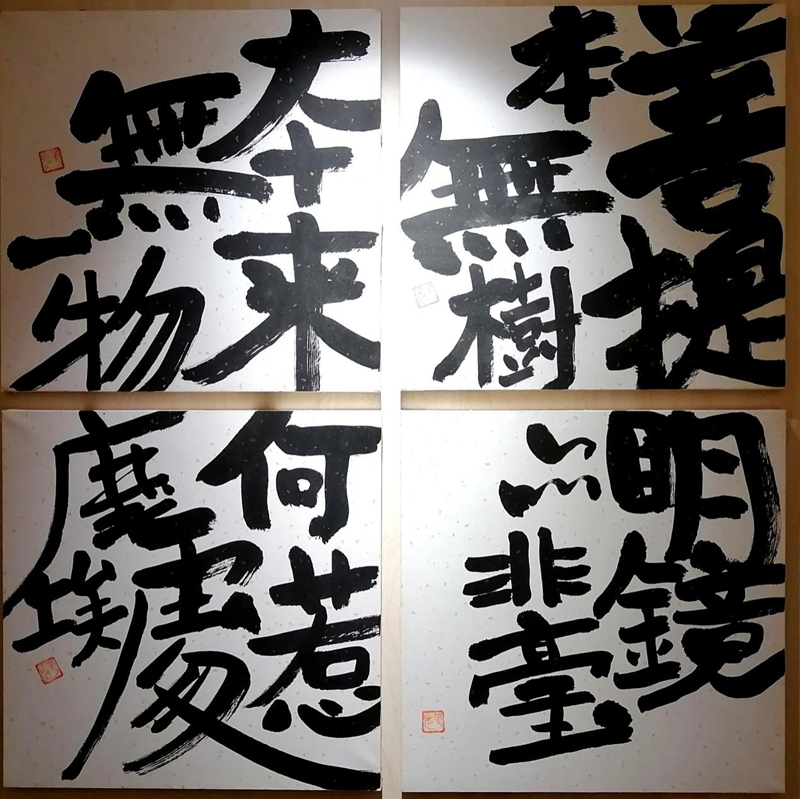 菩提
本無樹
眀鏡
亦非臺
夲来
無一物
何惹
處
塵埃